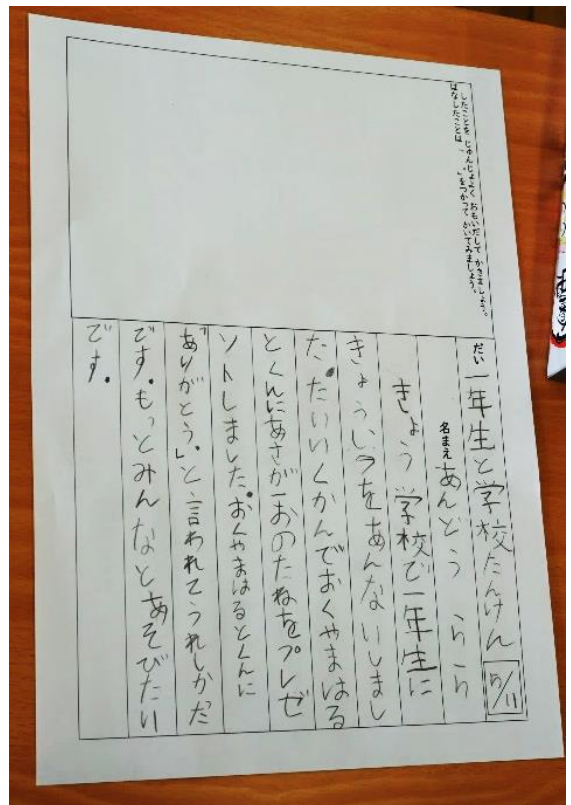 したことを じゅんじょよく おもいだして かきましょう。
はなしたことは、「 。」をつかって かいてみましょう。
だい 一年生と学校たんけん 5/11
名まえ あんどう らら
きょう学校で一年生に
きょういつをあんないしまし
た。たいいくかんでおくやまはる
とくんにあさがおのたねをプレゼ
ントしました。おくやまはるとくんに
「ありがとう。」と言われてうれしかった
です。もっとみんなとあそびたい
です。